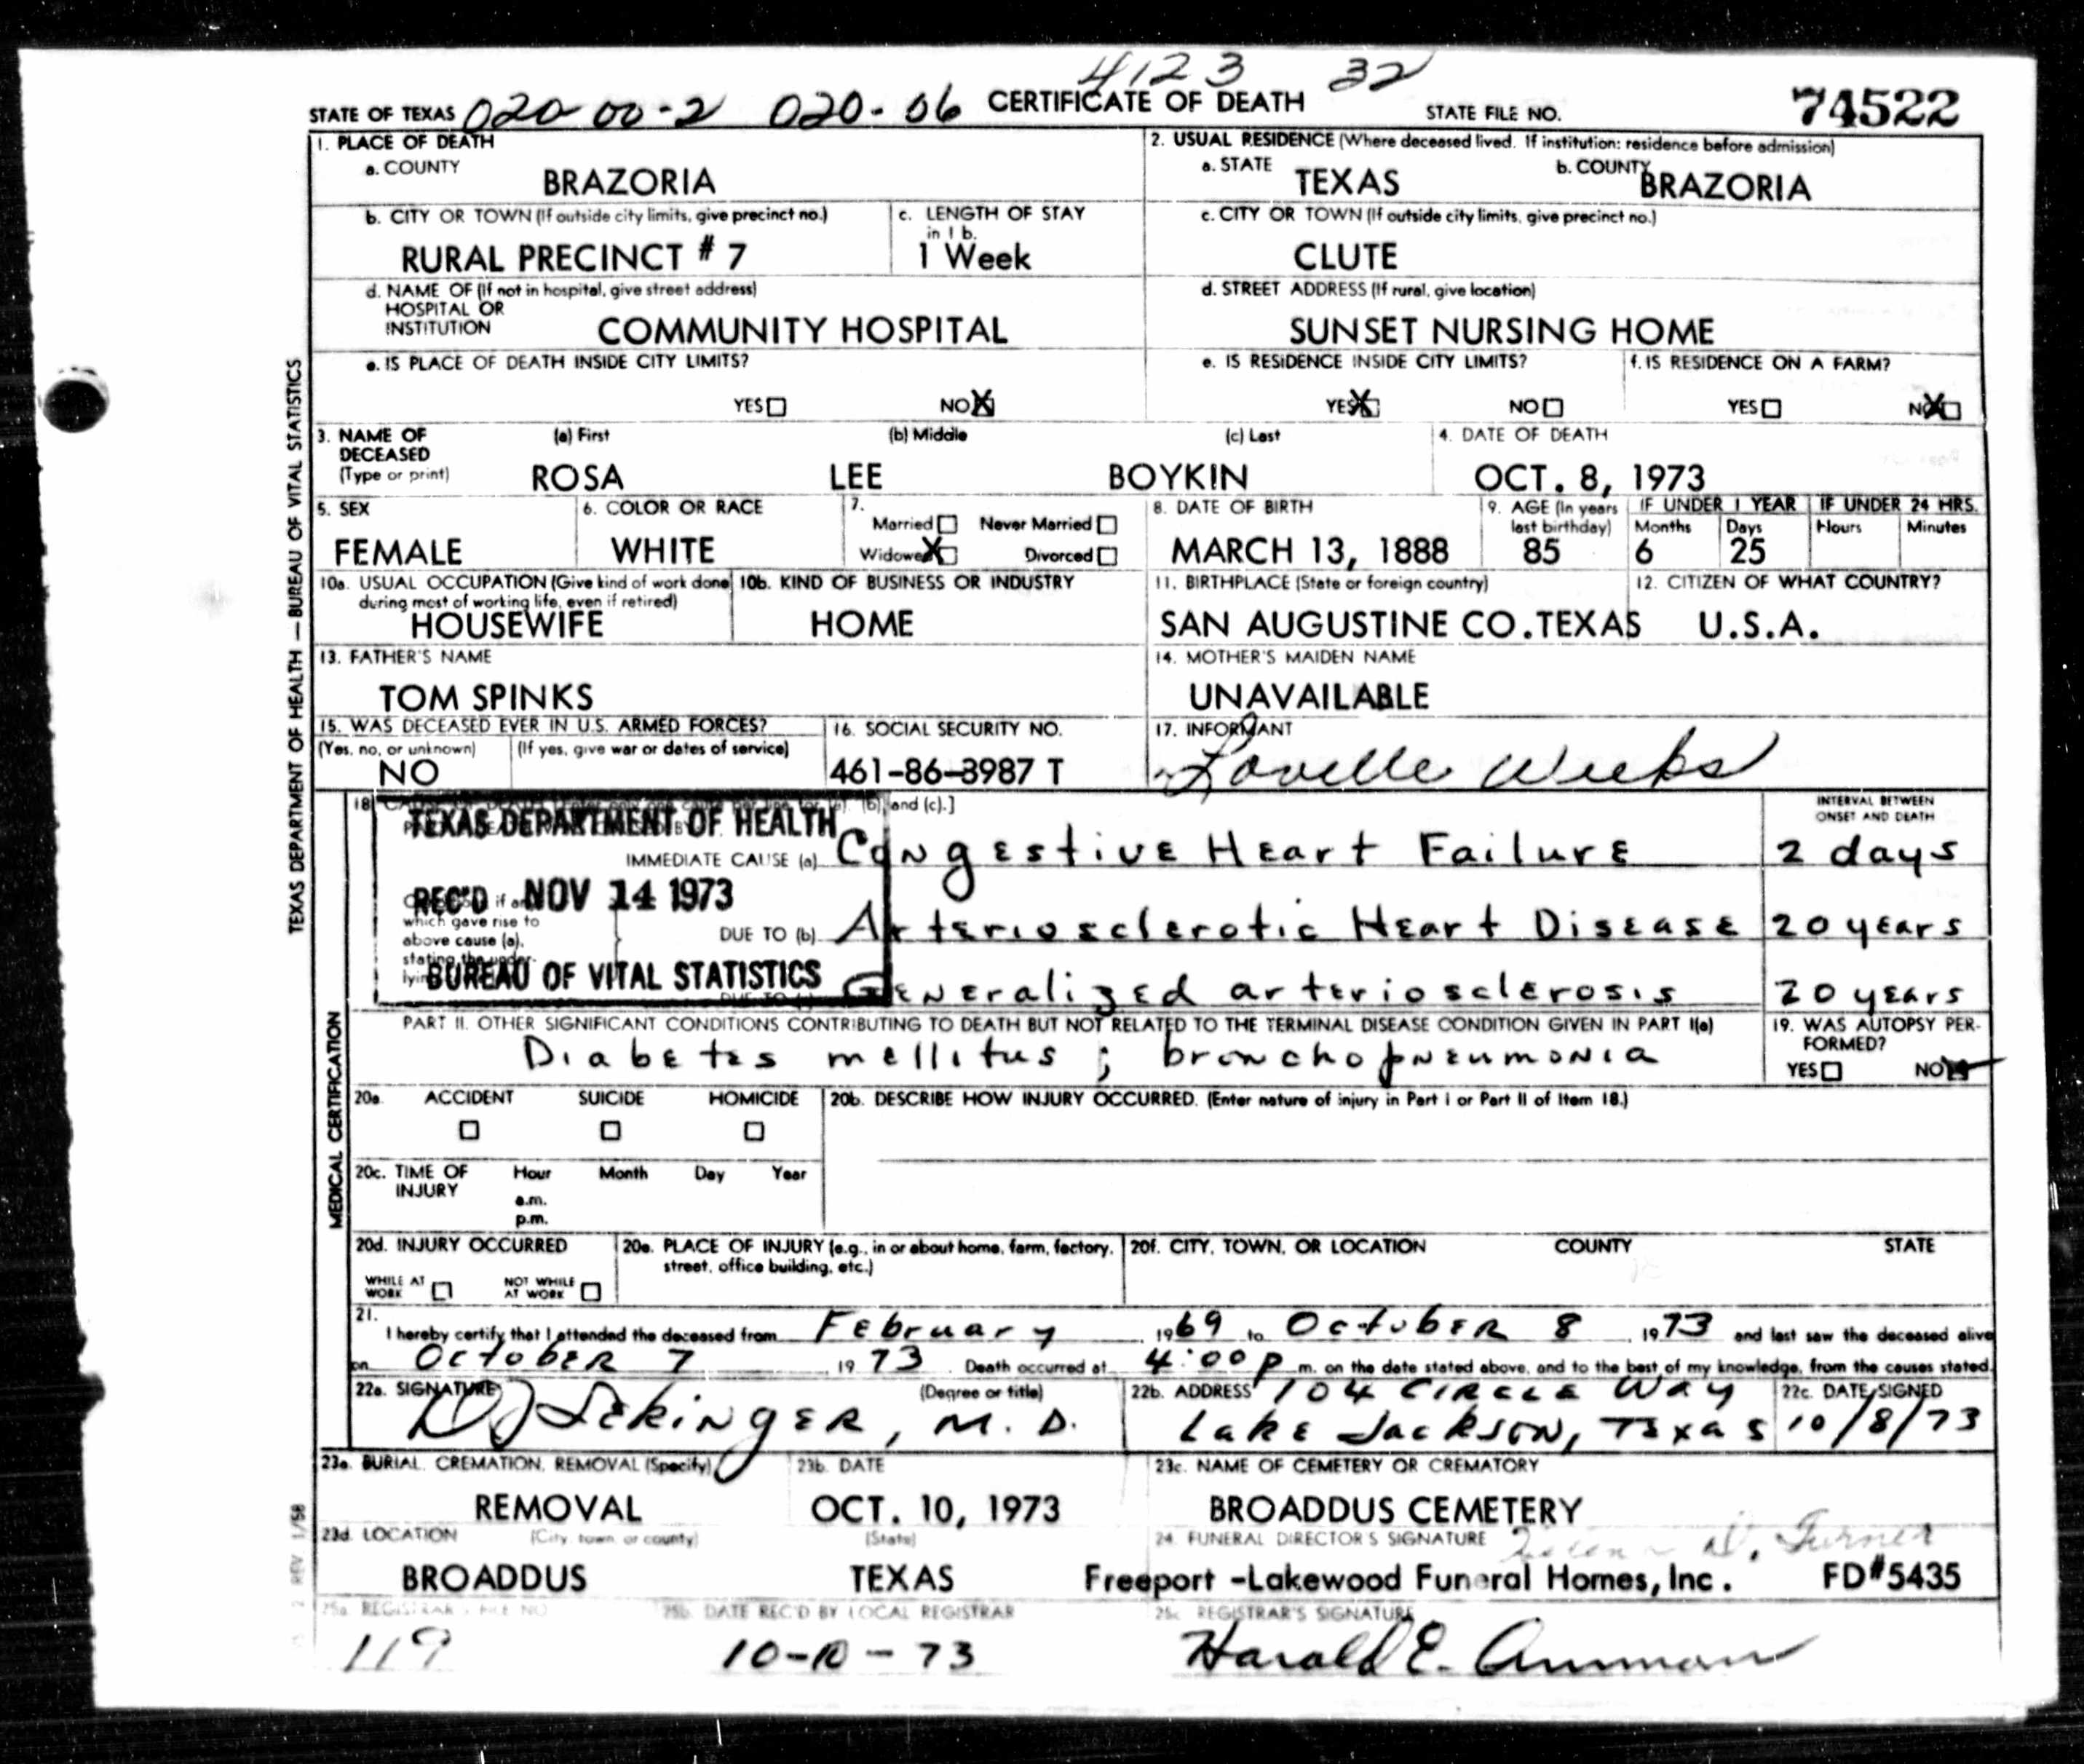 4123 32
STATE OF TEXAS 020-00-2 020-06 CERTIFICATE OF DEATH STATE FILE NO. 74522
1. PLACE OF DEATH
a. COUNTY BRAZORIA
2. USUAL RESIDENCE (Where deceased lived. If institution: residence before admission)
a. STATE TEXAS b. COUNTY BRAZORIA
b. CITY OR TOWN (If outside city limits, give precinct no.) RURAL PRECINCT # 7
c. LENGTH OF STAY in 1 b. 1 Week
c. CITY OR TOWN (If outside city limits, give precinct no.) CLUTE
d. NAME OF (If not in hospital, give street address)
HOSPITAL OR
INSTITUTION COMMUNITY HOSPITAL
d. STREET ADDRESS (If rural, give location)
SUNSET NURSING HOME
e. IS PLACE OF DEATH INSIDE CITY LIMITS?
YES NO X
e. IS RESIDENCE INSIDE CITY LIMITS?
YES X NO
f. IS RESIDENCE ON A FARM?
YES NO X
3. NAME OF DECEASED (Type or print)
(a) First (b) Middle (c) Last
ROSA LEE BOYKIN
4. DATE OF DEATH
OCT. 8, 1973
5. SEX
FEMALE
6. COLOR OR RACE
WHITE
7.
Married Never Married
Widowed X Divorced
8. DATE OF BIRTH
MARCH 13, 1888
9. AGE (In years last birthday)
85
IF UNDER 1 YEAR IF UNDER 24 HRS.
Months Days Hours Minutes
6 25
10a. USUAL OCCUPATION (Give kind of work done
during most of working life, even if retired)
HOUSEWIFE
10b. KIND OF BUSINESS OR INDUSTRY
HOME
11. BIRTHPLACE (State or foreign country)
SAN AUGUSTINE CO.TEXAS
12. CITIZEN OF WHAT COUNTRY?
U.S.A.
13. FATHER'S NAME
TOM SPINKS
14. MOTHER'S MAIDEN NAME
UNAVAILABLE
15. WAS DECEASED EVER IN U.S. ARMED FORCES?
(Yes, no, or unknown) (If yes, give war or dates of service)
NO
16. SOCIAL SECURITY NO.
461-86-3987 T
17. INFORMANT
Lovelle Weeks
18 (b) and (c).]
TEXAS DEPARTMENT OF HEALTH
REC'D NOV 14 1973
BUREAU OF VITAL STATISTICS
INTERVAL BETWEEN
ONSET AND DEATH
IMMEDIATE CAUSE (a) Congestive Heart Failure 2 days
which gave rise to
above cause (a),
stating the under-
DUE TO (b) Arteriosclerotic Heart Disease 20 years
Generalized arteriosclerosis 20 years
PART II. OTHER SIGNIFICANT CONDITIONS CONTRIBUTING TO DEATH BUT NOT RELATED TO THE TERMINAL DISEASE CONDITION GIVEN IN PART I(a)
Diabetes mellitus ; bronchopneumonia
19. WAS AUTOPSY PER-
FORMED?
YES NO X
20a. ACCIDENT SUICIDE HOMICIDE
20b. DESCRIBE HOW INJURY OCCURRED. (Enter nature of injury in Part I or Part II of Item 18.)
20c. TIME OF INJURY Hour Month Day Year
a.m.
p.m.
20d. INJURY OCCURRED
WHILE AT WORK NOT WHILE AT WORK
20e. PLACE OF INJURY (e.g., in or about home, farm, factory,
street, office building, etc.)
20f. CITY, TOWN, OR LOCATION COUNTY STATE
21.
I hereby certify that I attended the deceased from February , 1969 to October 8 , 1973 and last saw the deceased alive
on October 7 , 19 73 . Death occurred at 4:00 p m. on the date stated above, and to the best of my knowledge, from the causes stated.
22a. SIGNATURE (Degree or title)
M. D.
22b. ADDRESS 104 Circle Way
Lake Jackson, Texas
22c. DATE SIGNED
10/8/73
23a. BURIAL, CREMATION, REMOVAL (Specify)
REMOVAL
23b. DATE
OCT. 10, 1973
23c. NAME OF CEMETERY OR CREMATORY
BROADDUS CEMETERY
23d. LOCATION (City, town, or county) (State)
BROADDUS TEXAS
24. FUNERAL DIRECTOR'S SIGNATURE D. Turner
Freeport -Lakewood Funeral Homes, Inc. FD#5435
25a. REGISTRAR'S FILE NO
119
25b. DATE REC'D BY LOCAL REGISTRAR
10-10-73
25c. REGISTRAR'S SIGNATURE
Harald E. Amman
TEXAS DEPARTMENT OF HEALTH — BUREAU OF VITAL STATISTICS
MEDICAL CERTIFICATION
REV 1/58